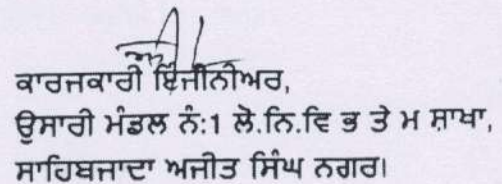 ਕਾਰਜਕਾਰੀ ਇੰਜੀਨੀਅਰ,
ਉਸਾਰੀ ਮੰਡਲ ਨੰ:1 ਲੋ.ਨਿ.ਵਿ ਭ ਤੇ ਮ ਸ਼ਾਖਾ,
ਸਾਹਿਬਜਾਦਾ ਅਜੀਤ ਸਿੰਘ ਨਗਰ।